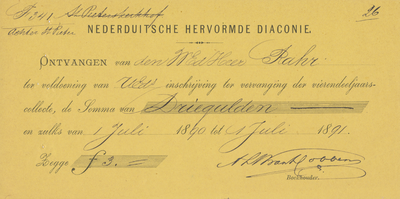 F. 341 St. Pieterskerkhof 26
Achter St. Pieter
NEDERDUITSCHE HERVORMDE DIACONIE.
ONTVANGEN van den WEd Heer Rahr.
ter voldoening van UEd inschrijving ter vervanging der vierendeeljaars-
collecte, de Somma van Driegulden
en zulks van 1 Juli 1890 tot 1 Juli 1891.
Zegge f 3.=
Boekhouder.